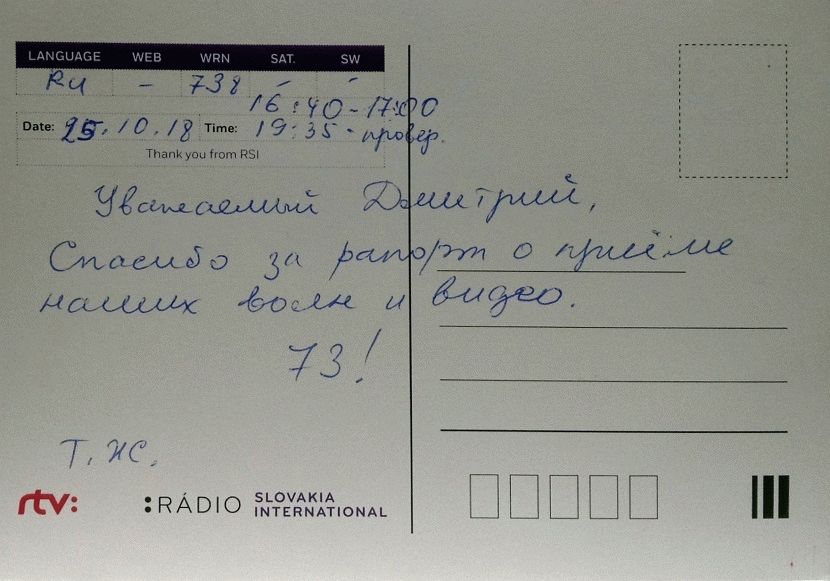 LANGUAGE WEB WRN SAT. SW
Ru - 738 - -
16:40-17:00
Date: 25.10.18 Time: 19:35-провер.
Thank you from RSI
Уважаемый Дмитрий,
Спасибо за рапорт о приёме
наших волн и видео.
73!
Т. НС.
rtv:
:RÁDIO SLOVAKIA
INTERNATIONAL